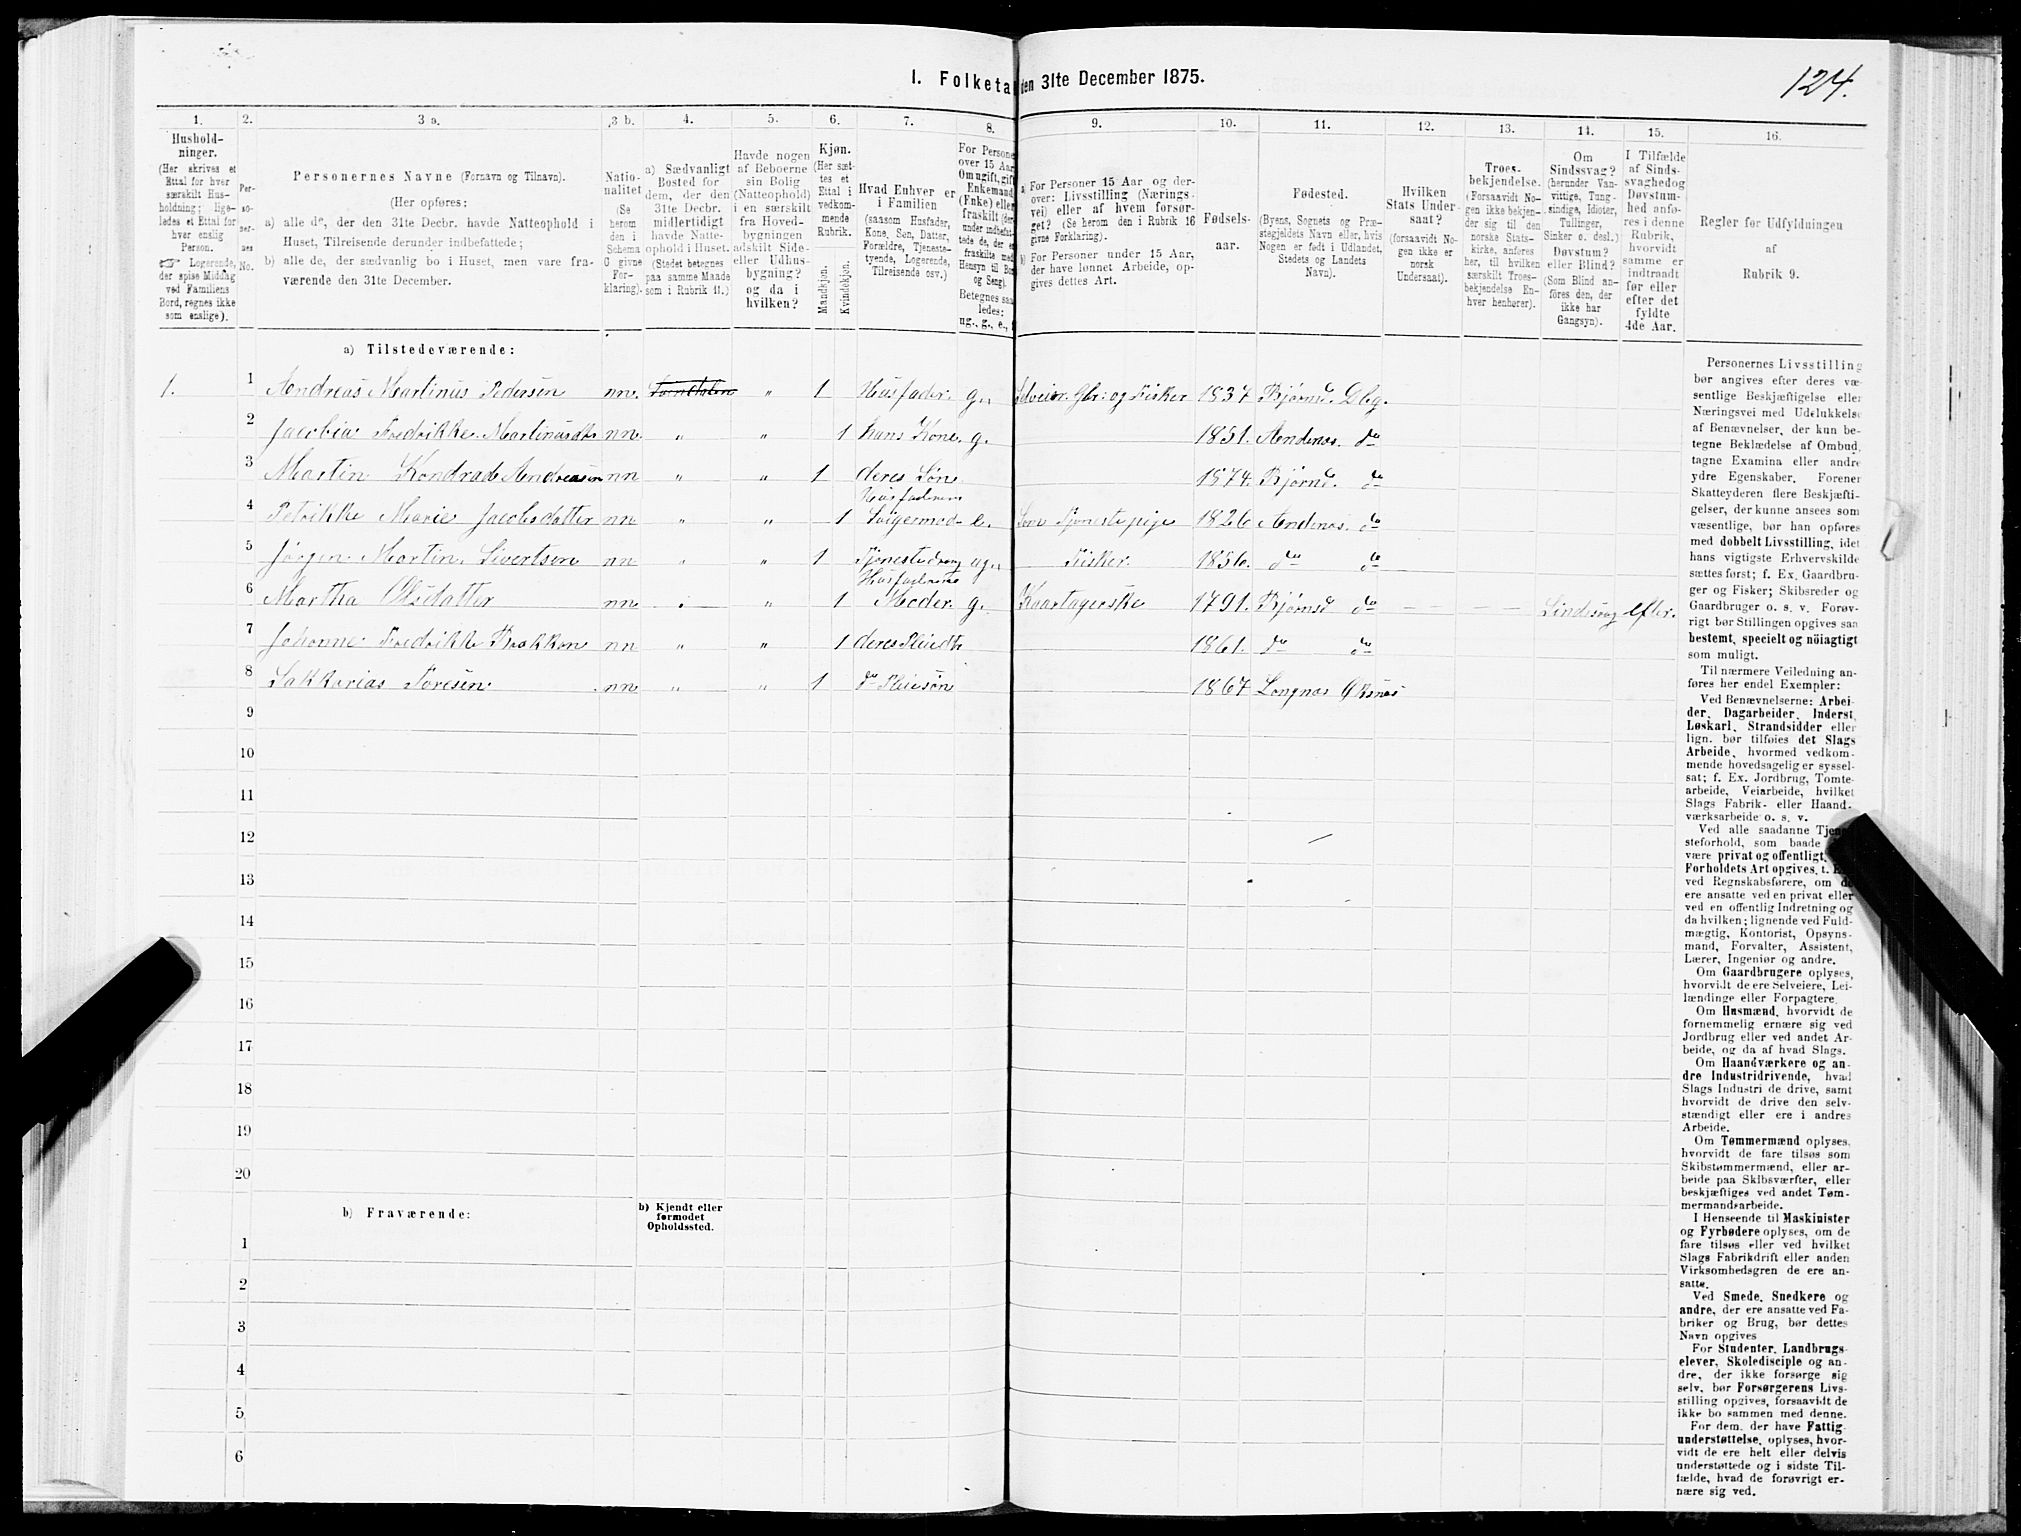 I. Folketal den 31te December 1875.
124.
1. 2. 3 a. 3 b. 4. 5. 6. 7. 8. 9. 10. 11. 12. 13. 14. 15. 16.
Hushold-
ninger.
(Her skrives et
Ettal for hver
særskilt Hus-
holdning; lige-
ledes et Ettal for
hver enslig
Person.
☞ Logerende,
der spise Middag
ved Familiens
Bord, regnes ikke
som enslige).
Per-
so-
ner-
nes
No.
Personernes Navne (Fornavn og Tilnavn).
(Her opføres:
a) alle de, der den 31te Decbr. havde Natteophold i
Huset, Tilreisende derunder indbefattede;
b) alle de, der sædvanlig bo i Huset, men vare fra-
værende den 31te December.
Natio-
nalitet
(Se
herom
den i
Schema
C givne
For-
klaring).
a) Sædvanligt
Bosted for
dem, der den
31te Decbr.
midlertidigt
havde Natte-
ophold i Huset.
(Stedet betegnes
paa samme Maade
som i Rubrik 11.)
Havde nogen
af Beboerne
sin Bolig
(Natteophold)
i en særskilt
fra Hoved-
bygningen
adskilt Side-
eller Udhus-
bygning?
og da i
hvilken?
Kjøn.
(Her sæt-
tes et
Ettal i
vedkom-
mende
Rubrik.
Mandkjøn.
Kvindekjøn.
Hvad Enhver er
i Familien
(saasom Husfader,
Kone, Søn, Datter,
Forældre, Tjeneste-
tyende, Logerende,
Tilreisende osv.)
For Persone
over 15 Aar
Om ugift, gift
Enkemand
(Enke) eller
fraskilt (der
under indbefat-
tede de, der e
fraskilte med
Hensyn til Bo
og Seng).
Betegnes saa
ledes:
ug., g., e., f
a) For Personer 15 Aar og der-
over: Livsstilling (Nærings-
vei) eller af hvem forsør-
get? (Se herom den i Rubrik 16
givne Forklaring).
b) For Personer under 15 Aar,
der have lønnet Arbeide, op-
gives dettes Art.
Fødsels-
aar.
Fødested.
(Byens, Sognets og Præ-
stegjeldets Navn eller, hvis
Nogen er født i Udlandet,
Stedets og Landets
Navn).
Hvilken
Stats Under-
saat?
(forsaavidt No-
gen ikke er
norsk
Undersaat).
Troes-
bekjendelse.
(Forsaavidt No-
gen ikke bekjen-
der sig til den
norske Stats-
kirke, anføres
her, til hvilken
særskilt Troes-
bekjendelse En-
hver henhører).
Om
Sindssvag?
(herunder Van-
vittige, Tung-
sindige, Idioter,
Tullinger,
Sinker o. desl.)
Døvstum?
eller Blind?
(Som Blind an-
føres den, der
ikke har
Gangsyn).
I Tilfælde
af Sinds-
svaghed og
Døvstum-
hed anfø-
res i denne
Rubrik,
hvorvidt
samme er
indtraadt
før eller
efter det
fyldte
4de Aar.
Regler for Udfyldningen
af
Rubrik 9.
a) Tilstedeværende:
1. 1 Andreas Martinus Pedersen nn. " 1 Husfader. g. Selveier. Gbr: og Fisker 1837 Bjørns. Dbg.
2 Jacobia Fredrikke Martinusdtr nn. " " 1 hans Kone. g. 1851. Andenæs. do
3 Martin Kondrad Andreassen nn " " 1 deres Søn 1874. Bjørns. do
4 Petrikke Marie Jacobsdatter nn " " 1 Husfaderens Svigermod e. Som Tjenestepige 1826 Andenæs. do
5 Jørgen Martin Sivertsen nn " " 1 Tjenestedreng ug. Fisker. 1856. do do
6 Martha Olsdatter nn " " 1 Husfaderens Moder. g. Kaartagerske 1791. Bjørns do Sindssvag efter.
7 Johanne Fredrikke nn " " 1 deres Pleiedtr 1861. do do
8 Sakkarias Toresen nn " " 1 do Pleiesøn 1867 Langnæs Øksnæs
9
10
11
12
13
14
15
16
17
18
19
20
b) Fraværende:
b) Kjendt eller
formodet
Opholdssted.
1
2
3
4
5
6
Personernes Livsstilling
bør angives efter deres væ-
sentlige Beskjæftigelse eller
Næringsvei med Udelukkelse
af Benævnelser, der kun be-
tegne Beklædelse af Ombud,
tagne Examina eller andre
ydre Egenskaber. Forener
Skatteyderen flere Beskjæfti-
gelser, der kunne ansees som
væsentlige, bør han opføres
med dobbelt Livsstilling, idet
hans vigtigste Erhvervskilde
sættes først; f. Ex. Gaardbru-
ger og Fisker; Skibsreder og
Gaardbruger o. s. v. Forøv-
rigt bør Stillingen opgives saa
bestemt, specielt og nöiagtigt
som muligt.
Til nærmere Veiledning an-
føres her endel Exempler:
Ved Benævnelserne: Arbei-
der, Dagarbeider, Inderst,
Løskarl, Strandsidder eller
lign. bør tilføies det Slags
Arbeide, hvormed vedkom-
mende hovedsagelig er syssel-
sat; f. Ex. Jordbrug, Tomte-
arbeide, Veiarbeide, hvilket
Slags Fabrik- eller Haand-
værksarbeide o. s. v.
Ved alle saadanne Tjene-
steforhold, som baade
være privat og offentligt,
Forholdets Art opgives, t. E
ved Regnskabsførere, om d
ere ansatte ved en privat eller
ved en offentlig Indretning og
da hvilken; lignende ved Fuld-
mægtig, Kontorist, Opsyns-
mand, Forvalter, Assistent,
Lærer, Ingeniør og andre.
Om Gaardbrugere oplyses,
hvorvidt de ere Selveiere, Lei-
lændinge eller Forpagtere.
Om Husmænd, hvorvidt de
fornemmelig ernære sig ved
Jordbrug eller ved andet Ar-
beide, og da af hvad Slags.
Om Haandværkere og an-
dre Industridrivende, hvad
Slags Industri de drive, samt
hvorvidt de drive den selv-
stændigt eller ere i andres
Arbeide.
Om Tømmermænd oplyses,
hvorvidt de fare tilsøs som
Skibstømmermænd, eller ar-
beide paa Skibsværfter, eller
beskjæftiges ved andet Tøm-
mermandsarbeide.
I Henseende til Maskinister
og Fyrbødere oplyses, om de
fare tilsøs eller ved hvilket
Slags Fabrikdrift eller anden
Virksomhedsgren de ere an-
satte.
Ved Smede, Snedkere og
andre, der ere ansatte ved Fa-
briker og Brug, bør dettes
Navn opgives
For Studenter, Landbrugs-
elever, Skoledisciple og an-
dre, der ikke forsørge sig
selv, bør Forsørgerens Livs-
stilling opgives, forsaavidt de
ikke bo sammen med denne.
For dem, der have Fattig-
understøttelse, oplyses, hvor-
vidt de ere helt eller delvis
understøttede og i sidste Til-
fælde, hvad de forøvrigt er-
nære sig ved.